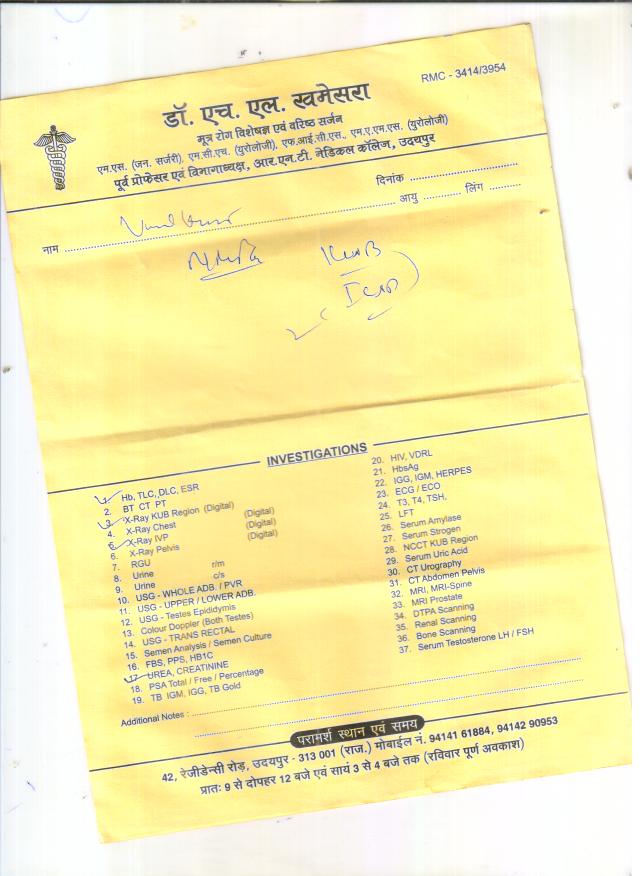 RMC - 3414/3954
डॉ. एच. एल. खमेसरा
मूत्र रोग विशेषज्ञ एवं वरिष्ठ सर्जन
एम.एस. (जन. सर्जरी), एम.सी.एच. (युरोलोजी), एफ.आई.सी.एस., एम.ए.एम.एस. (युरोलोजी)
पूर्व प्रोफेसर एवं विभागाध्यक्ष, आर.एन.टी. मेडिकल कॉलेज, उदयपुर
दिनांक
नाम आयु लिंग
KUB
INVESTIGATIONS
1. Hb, TLC, DLC, ESR
2. BT CT PT
3. X-Ray KUB Region (Digital)
4. X-Ray Chest (Digital)
5. X-Ray IVP (Digital)
6. X-Ray Pelvis (Digital)
7. RGU
8. Urine r/m
9. Urine c/s
10. USG - WHOLE ADB. / PVR
11. USG - UPPER / LOWER ADB.
12. USG - Testes Epididymis
13. Colour Doppler (Both Testes)
14. USG - TRANS RECTAL
15. Semen Analysis / Semen Culture
16. FBS, PPS, HB1C
17. UREA, CREATININE
18. PSA Total / Free / Percentage
19. TB IGM, IGG, TB Gold
20. HIV, VDRL
21. HbsAg
22. IGG, IGM, HERPES
23. ECG / ECO
24. T3, T4, TSH,
25. LFT
26. Serum Amylase
27. Serum Strogen
28. NCCT KUB Region
29. Serum Uric Acid
30. CT Urography
31. CT Abdomen Pelvis
32. MRI, MRI-Spine
33. MRI Prostate
34. DTPA Scanning
35. Renal Scanning
36. Bone Scanning
37. Serum Testosterone LH / FSH
Additional Notes :
परामर्श स्थान एवं समय
42, रेजीडेन्सी रोड़, उदयपुर - 313 001 (राज.) मोबाईल नं. 94141 61884, 94142 90953
प्रातः 9 से दोपहर 12 बजे एवं सायं 3 से 4 बजे तक (रविवार पूर्ण अवकाश)